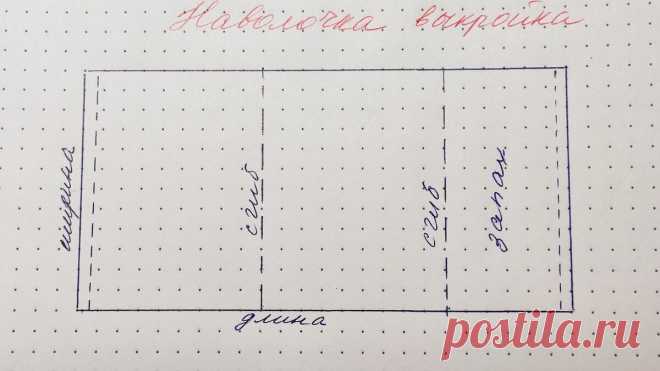 Наволочка выкройка
ширина
сгиб
сгиб
запах
длина
postila.ru